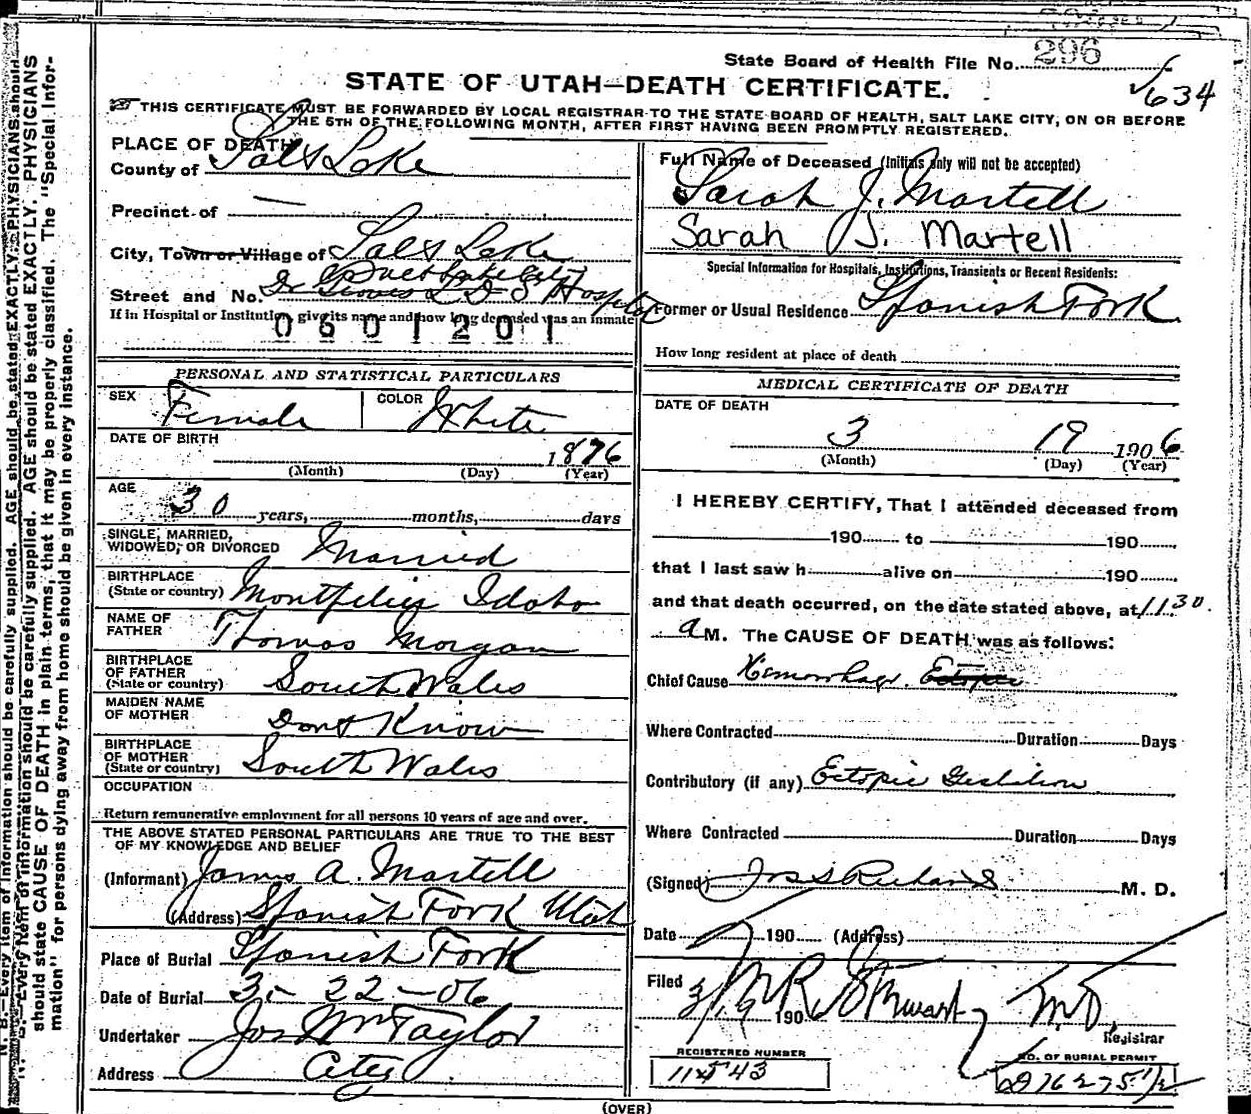 296
State Board of Health File No.
634
STATE OF UTAH—DEATH CERTIFICATE.
THIS CERTIFICATE MUST BE FORWARDED BY LOCAL REGISTRAR TO THE STATE BOARD OF HEALTH, SALT LAKE CITY, ON OR BEFORE
THE 5TH OF THE FOLLOWING MONTH, AFTER FIRST HAVING BEEN PROMPTLY REGISTERED.
PLACE OF DEATH
County of Salt Lake
Precinct of
City, Town or Village of Salt Lake
Street and No. Dr Groves L D S Hospital
If in Hospital or Institution, give its name and how long deceased was an inmate
0601201
Full Name of Deceased (Initials only will not be accepted)
Sarah J. Martell
Sarah J. Martell
Special Information for Hospitals, Institutions, Transients or Recent Residents:
Former or Usual Residence Spanish Fork
How long resident at place of death
PERSONAL AND STATISTICAL PARTICULARS
SEX Female COLOR White
DATE OF BIRTH 1876
(Month) (Day) (Year)
AGE
30 years, months, days
SINGLE, MARRIED,
WIDOWED, OR DIVORCED Married
BIRTHPLACE
(State or country) Montpelier Idaho
NAME OF
FATHER Thomas Morgan
BIRTHPLACE
OF FATHER
(State or country) South Wales
MAIDEN NAME
OF MOTHER Dont Know
BIRTHPLACE
OF MOTHER
(State or country) South Wales
OCCUPATION
Return remunerative employment for all persons 10 years of age and over.
THE ABOVE STATED PERSONAL PARTICULARS ARE TRUE TO THE BEST
OF MY KNOWLEDGE AND BELIEF
(Informant) James A. Martell
(Address) Spanish Fork Utah
Place of Burial Spanish Fork
Date of Burial 3-22-06
Undertaker Jos Wm Taylor
Address City
MEDICAL CERTIFICATE OF DEATH
DATE OF DEATH
3 19 1906
(Month) (Day) (Year)
I HEREBY CERTIFY, That I attended deceased from
190 to 190
that I last saw h alive on 190
and that death occurred, on the date stated above, at 11 30.
a M. The CAUSE OF DEATH was as follows:
Chief Cause Hemorrhage. Ectopic
Where Contracted Duration Days
Contributory (if any) Ectopic Gestation
Where Contracted Duration Days
(Signed) Jos S Richards M. D.
Date 190 (Address)
Filed 3/19 190 Stewart M.D.
Registrar
REGISTERED NUMBER
NO. OF BURIAL PERMIT
(OVER)
N. B.—Every item of information should be carefully supplied. AGE should be stated EXACTLY. PHYSICIANS should
N. B.—Every item of information should be carefully supplied. AGE should be stated EXACTLY. PHYSICIANS
should state CAUSE OF DEATH in plain terms, that it may be properly classified. The "Special Infor-
mation" for persons dying away from home should be given in every instance.